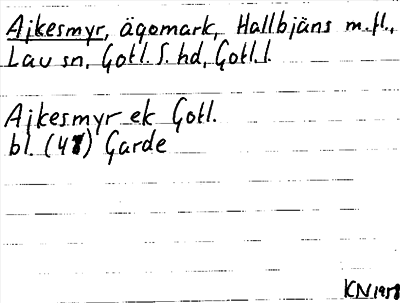 Ajkesmyr, ägomark, Hallbjäns m.fl.,
Lau sn, Gotl. S. hd, Gotl. l.
Ajkesmyr ek Gotl.
bl. (47) Garde
KN 1958